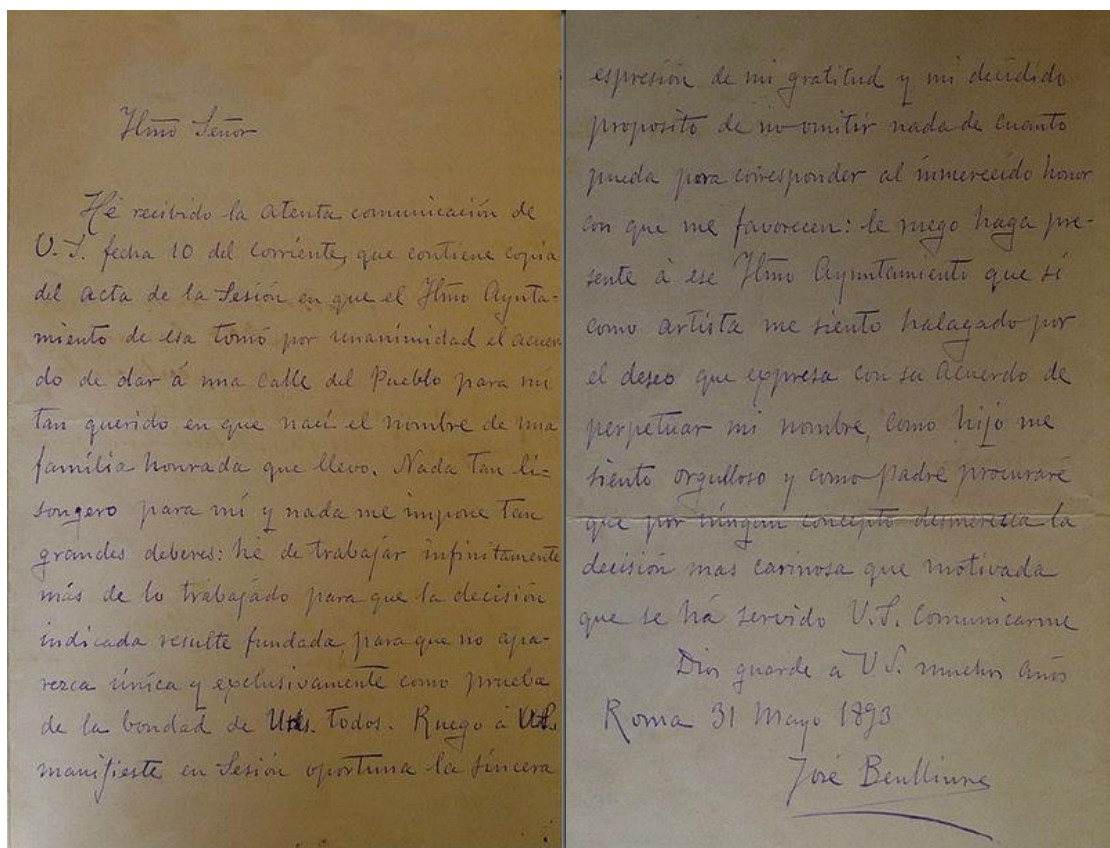 Iltmo Señor
Hé recibido la atenta comunicación de
V. S. fecha 10 del corriente, que contiene copia
del acta de la Sesión en que el Iltmo Ayunta-
miento de esa tomó por unanimidad el acuer
do de dar á una calle del Pueblo para mí
tan querido en que nací el nombre de una
família honrada que llevo. Nada tan li-
songero para mí y nada me impone tan
grandes deberes: hé de trabajar infinitamente
más de lo trabajado para que la decisión
indicada resulte fundada, para que no apa-
rezca única y exclusivamente como prueba
de la bondad de Uds. todos. Ruego á V.S.
manifieste en Sesión oportuna la sincera
espresión de mi gratitud y mi decidido
proposito de no omitir nada de cuanto
pueda para corresponder al inmerecido honor
con que me favorecen: le ruego haga pre-
sente á ese Iltmo Ayuntamiento que si
como artista me siento halagado por
el deseo que expresa con su acuerdo de
perpetuar mi nombre, como hijo me
siento orgulloso y como padre procuraré
que por ningun concepto desmerezca la
decisión mas cariñosa que motivada
que se há servido V.S. comunicarme
Dios guarde a V.S. muchos años
Roma 31 Mayo 1893
José Benlliure